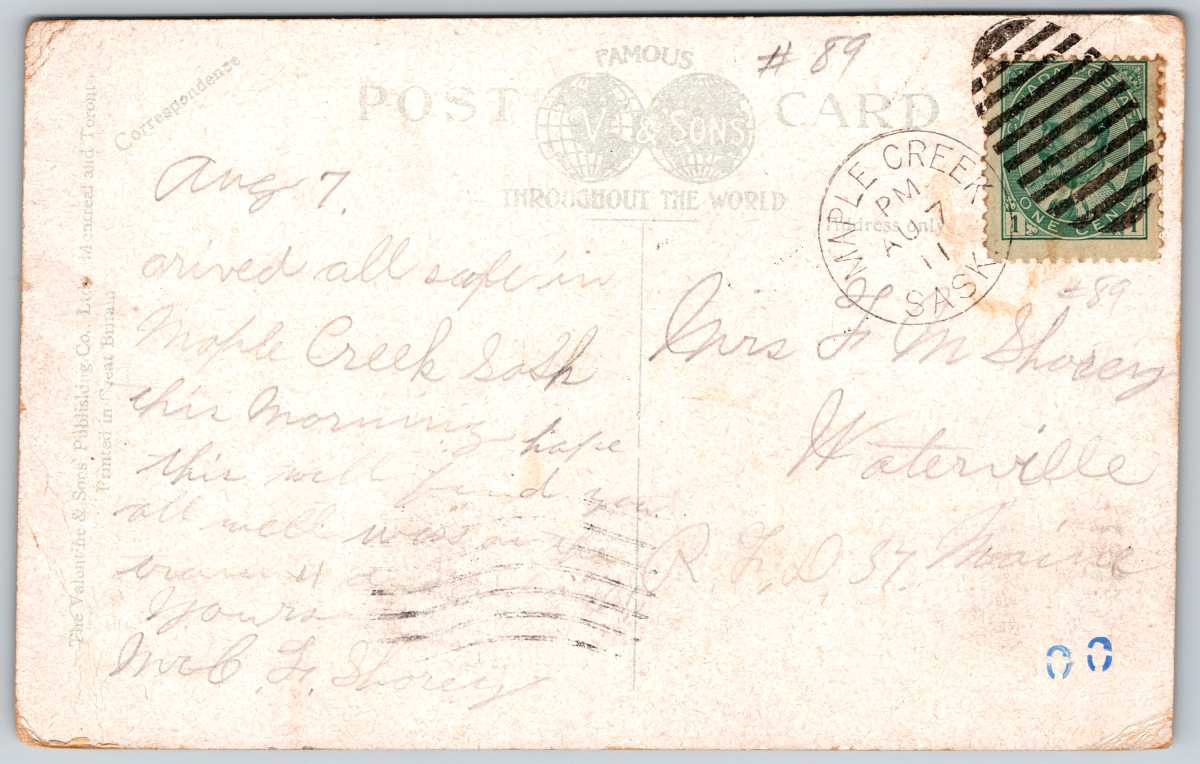 Correspondence
POST CARD
FAMOUS
V. & SONS
THROUGHOUT THE WORLD
# 89
Address only
MAPLE CREEK
PM 7
AU
11
SASK
CANADA POSTAGE
1 ONE CENT 1
# 89
Aug 7.
arived all safe in
Maple Creek Sask
this morning hope
this will find you
all well was on the
train 4 d
Yours
Mr C. F. Shorey
Mrs F M Shorey
Waterville
R F D 37 Maine
The Valentine & Sons Publishing Co., Ltd. Montreal and Toronto
Printed in Great Britain
00